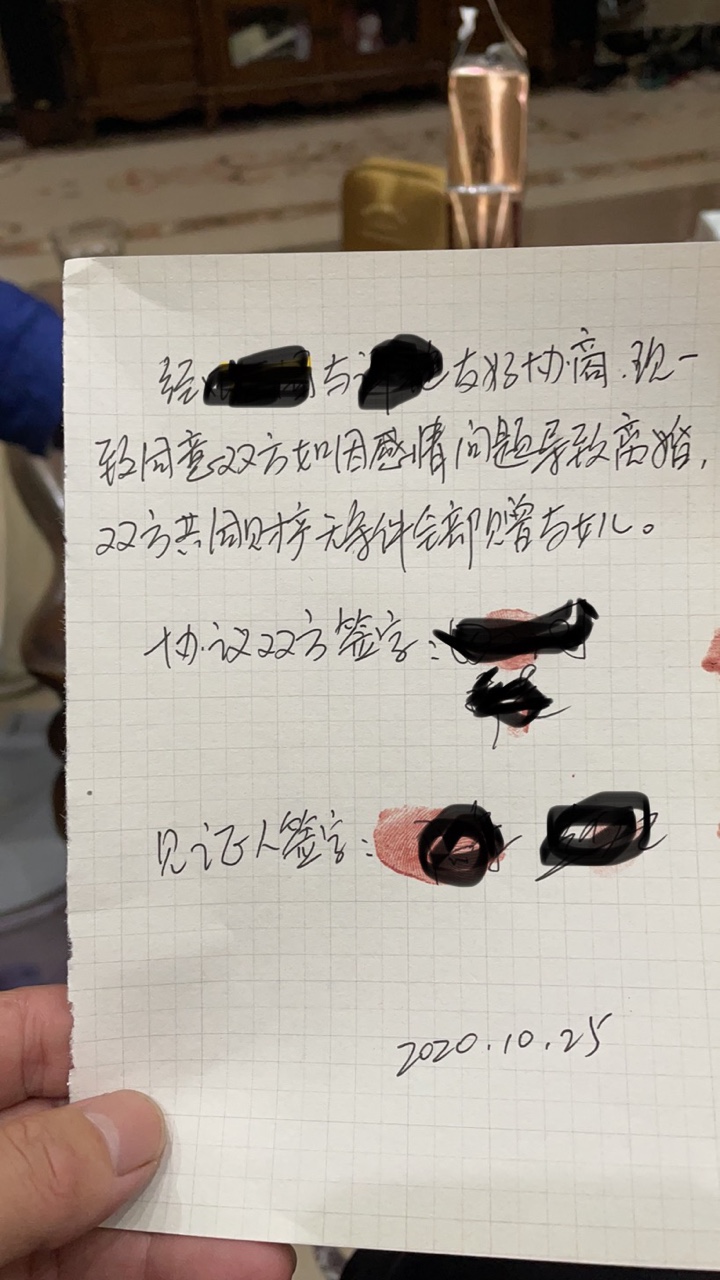 经 与 友好协商.现一
致同意双方如因感情问题导致离婚,
双方共同财产无条件全部赠与女儿。
协议双方签字:
见证人签字:
2020.10.25